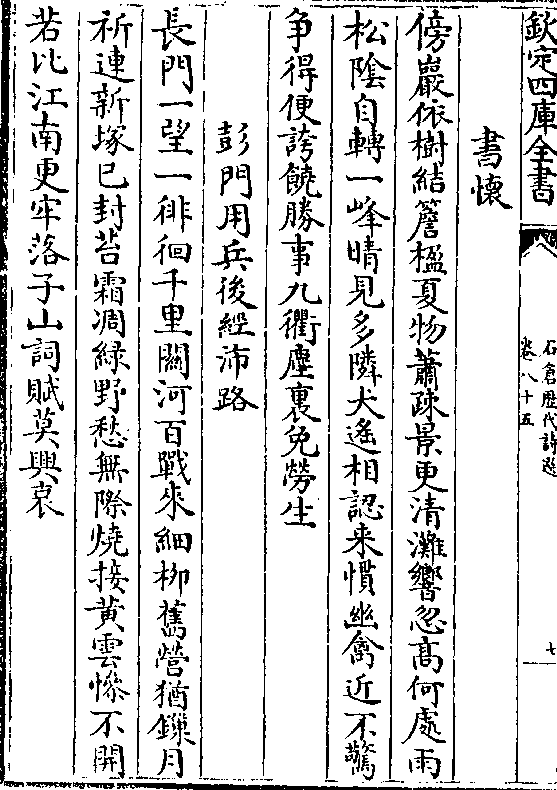 欽定四庫全書
石倉歷代詩選
卷八十五
七
書懷
傍巖依樹結簷楹夏物蕭疎景更清灘響忽高何處雨
松陰自轉一峰晴見多隣犬遙相認来慣幽禽近不驚
争得便誇饒勝事九衢塵裏免勞生
彭門用兵後經沛路
長門一望一徘徊千里關河百戰來細柳舊營猶鏁月
祈連新塚已封苔霜凋緑野愁無際燒接黄雲慘不開
若比江南更牢落子山詞賦莫興哀